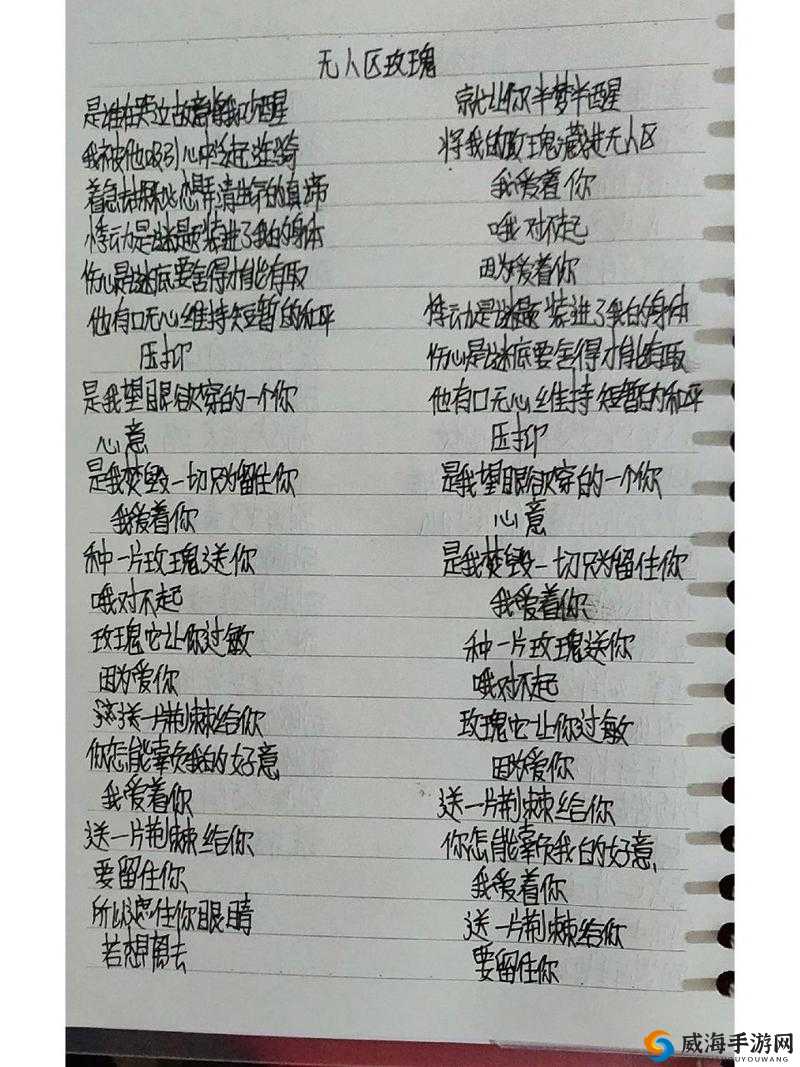 无人区玫瑰
是谁在旁边故意将我吵醒
我被他吸引心中泛起涟漪
着急去探秘想弄清生命的真谛
悸动是谜题装进了我的身体
伤心是谜底要舍得才能有取
他有口无心维持短暂的和平
压抑
是我望眼欲穿的一个你
心意
是我焚毁一切只为留住你
我爱着你
种一片玫瑰送你
哦对不起
玫瑰它让你过敏
因为爱你
送一片荆棘给你
你怎能辜负我的好意
我爱着你
送一片荆棘给你
要留住你
所以遮住你眼睛
若想离去
就让你半梦半醒
将我的玫瑰藏进无人区
我爱着你
哦对不起
因为爱着你
悸动是谜题装进了我的身体
伤心是谜底要舍得才能有取
他有口无心维持短暂的和平
压抑
是我望眼欲穿的一个你
心意
是我焚毁一切只为留住你
我爱着你
种一片玫瑰送你
哦对不起
玫瑰它让你过敏
因为爱你
送一片荆棘给你
你怎能辜负我的好意
我爱着你
送一片荆棘给你
要留住你
威海手游网